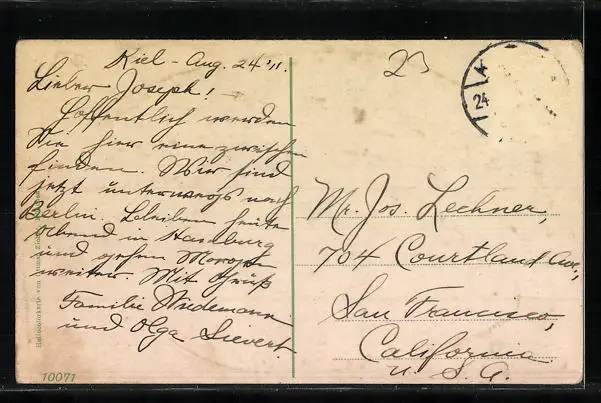 Kiel - Aug. 24 '11.
Lieber Joseph!
Hoffentlich werden
Sie hier eine zwischen
finden. Wir sind
jetzt unterwegs nach
Berlin. Bleiben heute
Abend in Hamburg
und gehen
weiter. Mit Gruß
Familie Wiedemann
und Olga Sievert.
10071
23
24
Mr. Jos. Lechner,
704 Courtland Ave.,
San Francisco,
California
U. S. A.